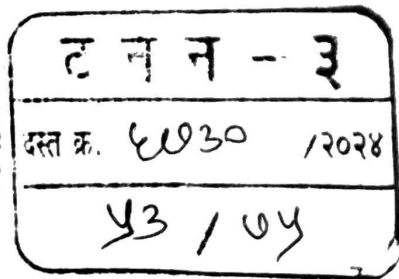 ट न न - ३
दस्त क्र. ६७३० /२०२४
५३ / ७५